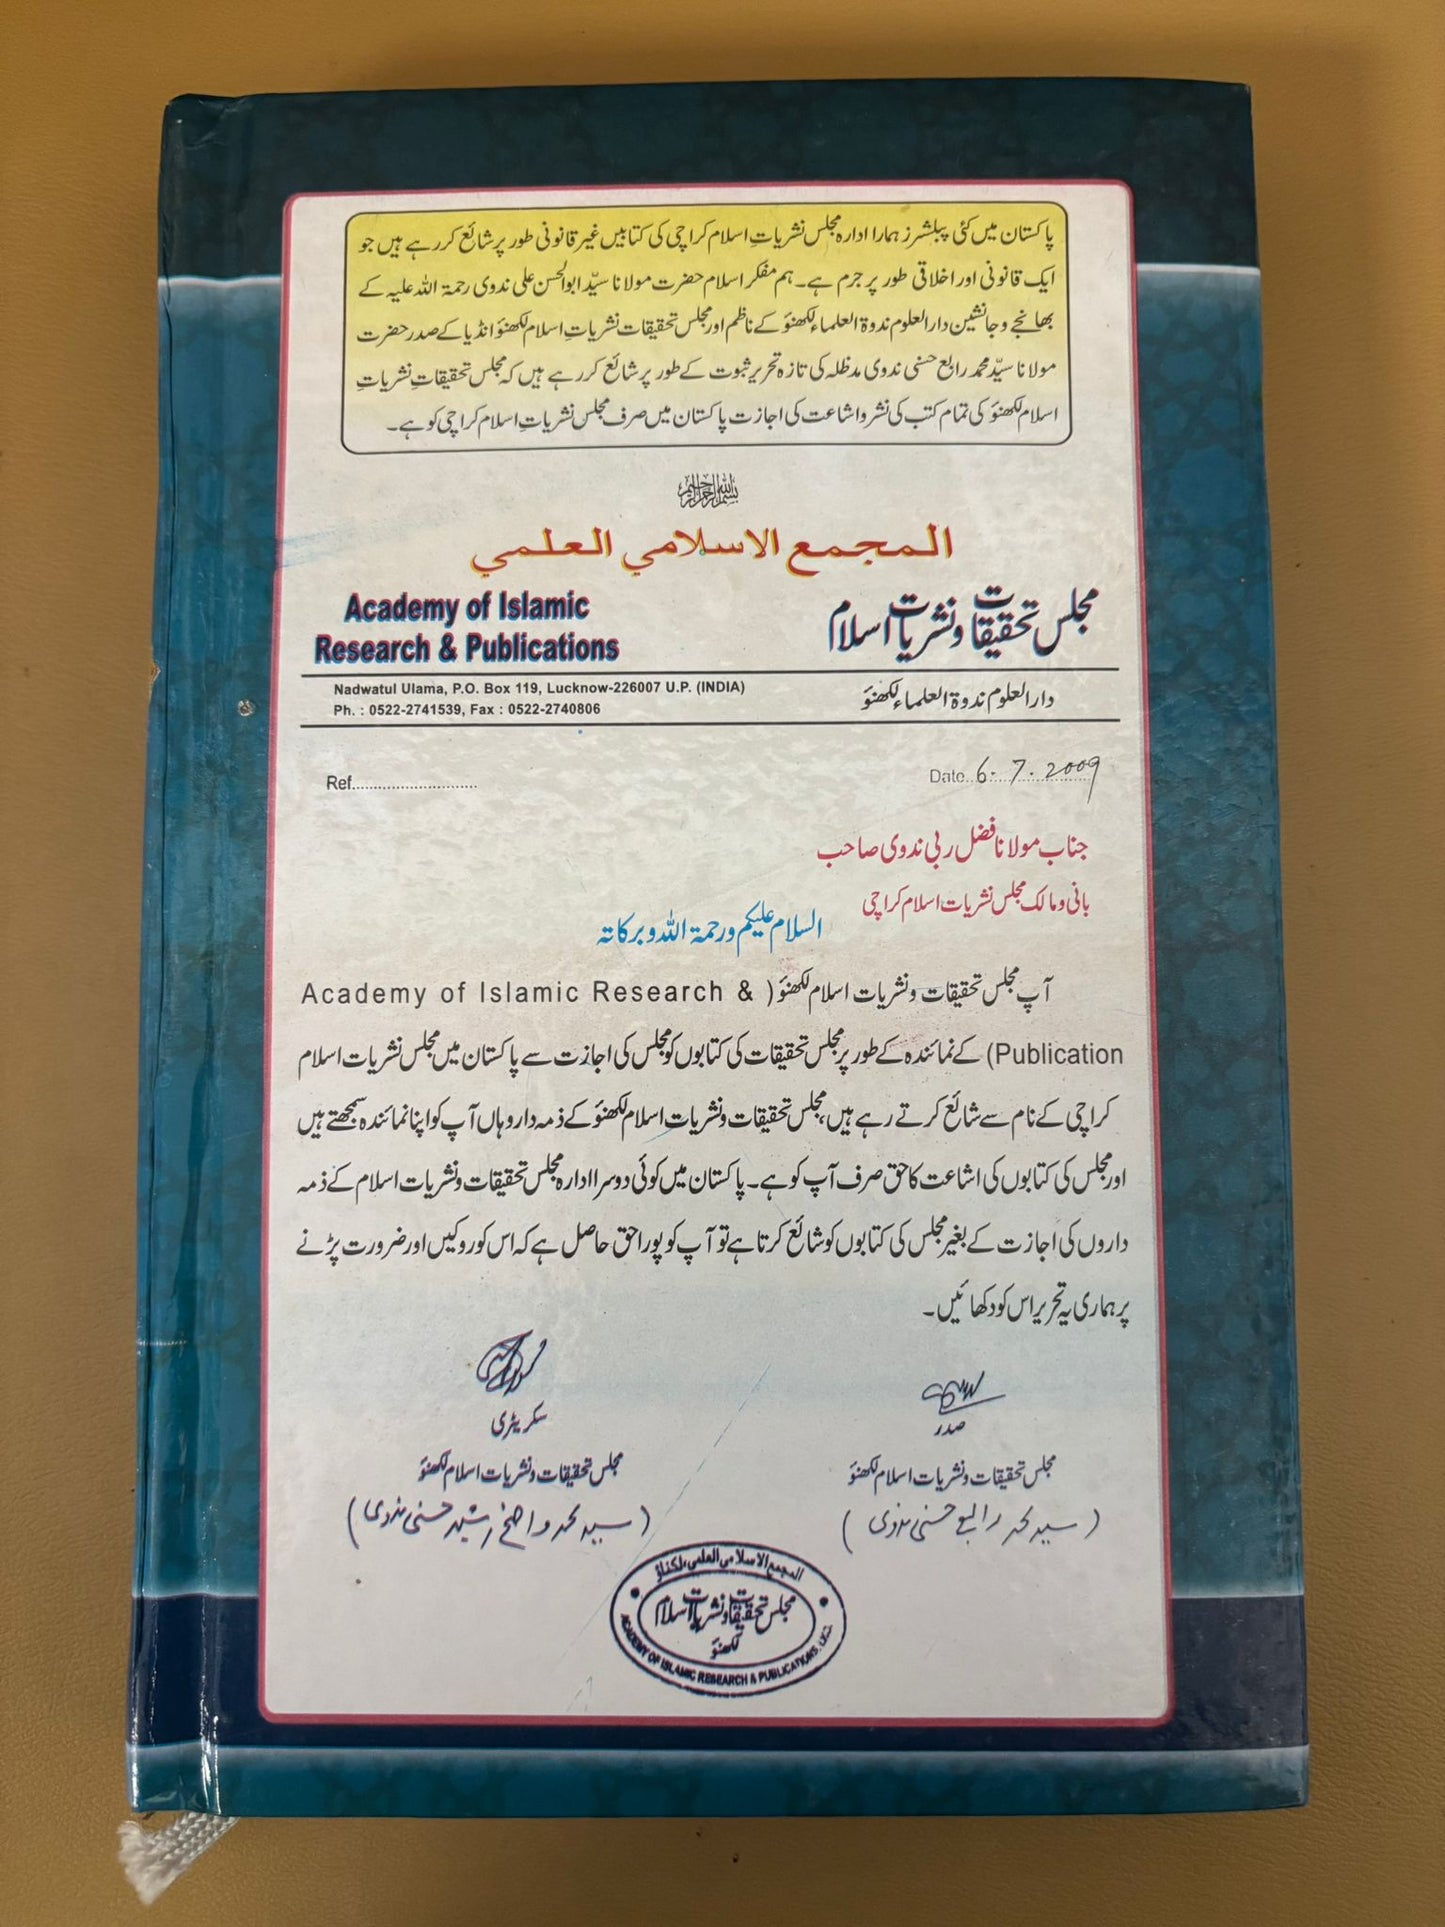 پاکستان میں کئی پبلشرز ہمارا ادارہ مجلس نشریاتِ اسلام کراچی کی کتابیں غیر قانونی طور پر شائع کر رہے ہیں جو
ایک قانونی اور اخلاقی طور پر جرم ہے۔ ہم مفکر اسلام حضرت مولانا سیّد ابوالحسن علی ندوی رحمۃ اللہ علیہ کے
بھانجے و جانشین دارالعلوم ندوۃ العلماء لکھنؤ کے ناظم اور مجلس تحقیقات نشریاتِ اسلام لکھنؤ انڈیا کے صدر حضرت
مولانا سیّد محمد رابع حسنی ندوی مدظلہ کی تازہ تحریر ثبوت کے طور پر شائع کر رہے ہیں کہ مجلس تحقیقاتِ نشریاتِ
اسلام لکھنؤ کی تمام کتب کی نشر و اشاعت کی اجازت پاکستان میں صرف مجلس نشریاتِ اسلام کراچی کو ہے۔
بسم الله الرحمن الرحيم
المجمع الاسلامي العلمي
Academy of Islamic
Research & Publications
مجلس تحقیقات و نشریات اسلام
Nadwatul Ulama, P.O. Box 119, Lucknow-226007 U.P. (INDIA)
Ph. : 0522-2741539, Fax : 0522-2740806
دارالعلوم ندوۃ العلماء لکھنؤ
Ref............................
Date..6.7.2009
جناب مولانا فضل ربی ندوی صاحب
بانی و مالک مجلس نشریات اسلام کراچی
السلام علیکم ورحمۃ اللہ وبرکاتہ
آپ مجلس تحقیقات و نشریات اسلام لکھنؤ (Academy of Islamic Research &
Publication) کے نمائندہ کے طور پر مجلس تحقیقات کی کتابوں کو مجلس کی اجازت سے پاکستان میں مجلس نشریات اسلام
کراچی کے نام سے شائع کرتے رہے ہیں، مجلس تحقیقات و نشریات اسلام لکھنؤ کے ذمہ دار وہاں آپ کو اپنا نمائندہ سمجھتے ہیں
اور مجلس کی کتابوں کی اشاعت کا حق صرف آپ کو ہے۔ پاکستان میں کوئی دوسرا ادارہ مجلس تحقیقات و نشریات اسلام کے ذمہ
داروں کی اجازت کے بغیر مجلس کی کتابوں کو شائع کرتا ہے تو آپ کو پورا حق حاصل ہے کہ اس کو روکیں اور ضرورت پڑنے
پر ہماری یہ تحریر اس کو دکھائیں۔
صدر
مجلس تحقیقات و نشریات اسلام لکھنؤ
(سید محمد رابع حسنی ندوی)
سکریٹری
مجلس تحقیقات و نشریات اسلام لکھنؤ
(سید محمد واضح رشید حسنی ندوی)
المجمع الاسلامي العلمي، لکناؤ
مجلس تحقیقات و نشریات اسلام
لکھنؤ
ACADEMY OF ISLAMIC RESEARCH & PUBLICATIONS, LKO.